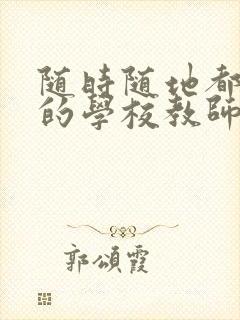 随時随地都
的學校教師
郭頌霞